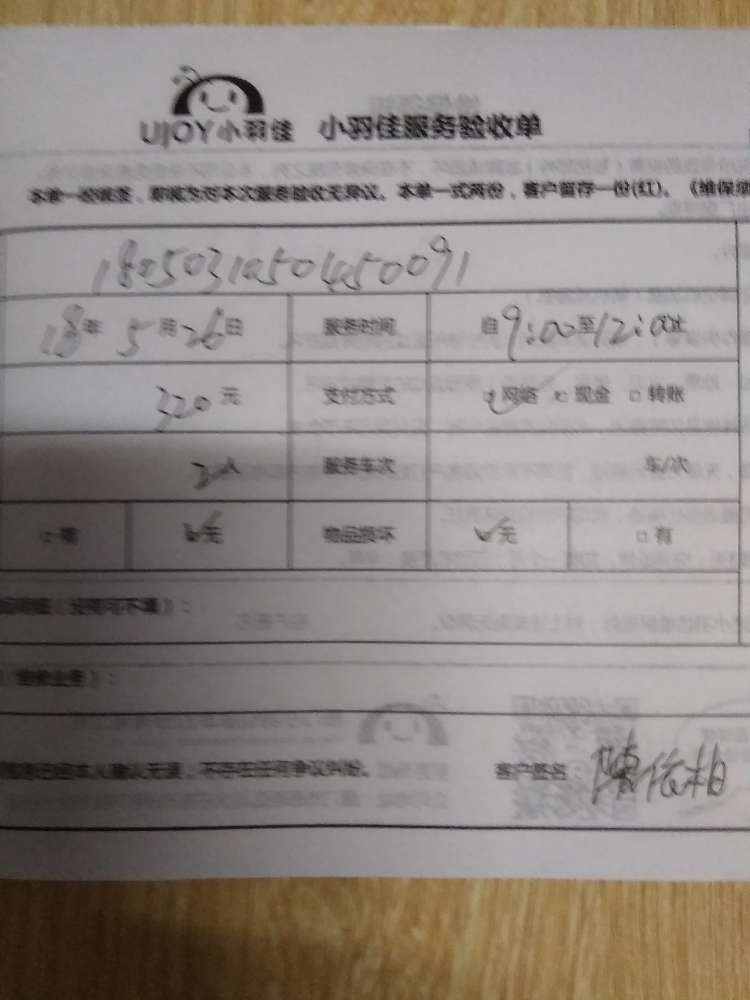 UJOY小羽佳 小羽佳服务验收单
本单一经账签，即视为对本次服务验收无异议。本单一式两份，客户留存一份(红)。《维保须
180503105045009​1
18年 5月26日 服务时间 自9:00至12:00止
320元 支付方式 网络 现金 □转账
2人 服务车次 车/次
□有 无 物品损坏 无 □有
(没有可不填)：
已经本人确认无误，不存在任何争议纠纷。 客户签名：陳依柏